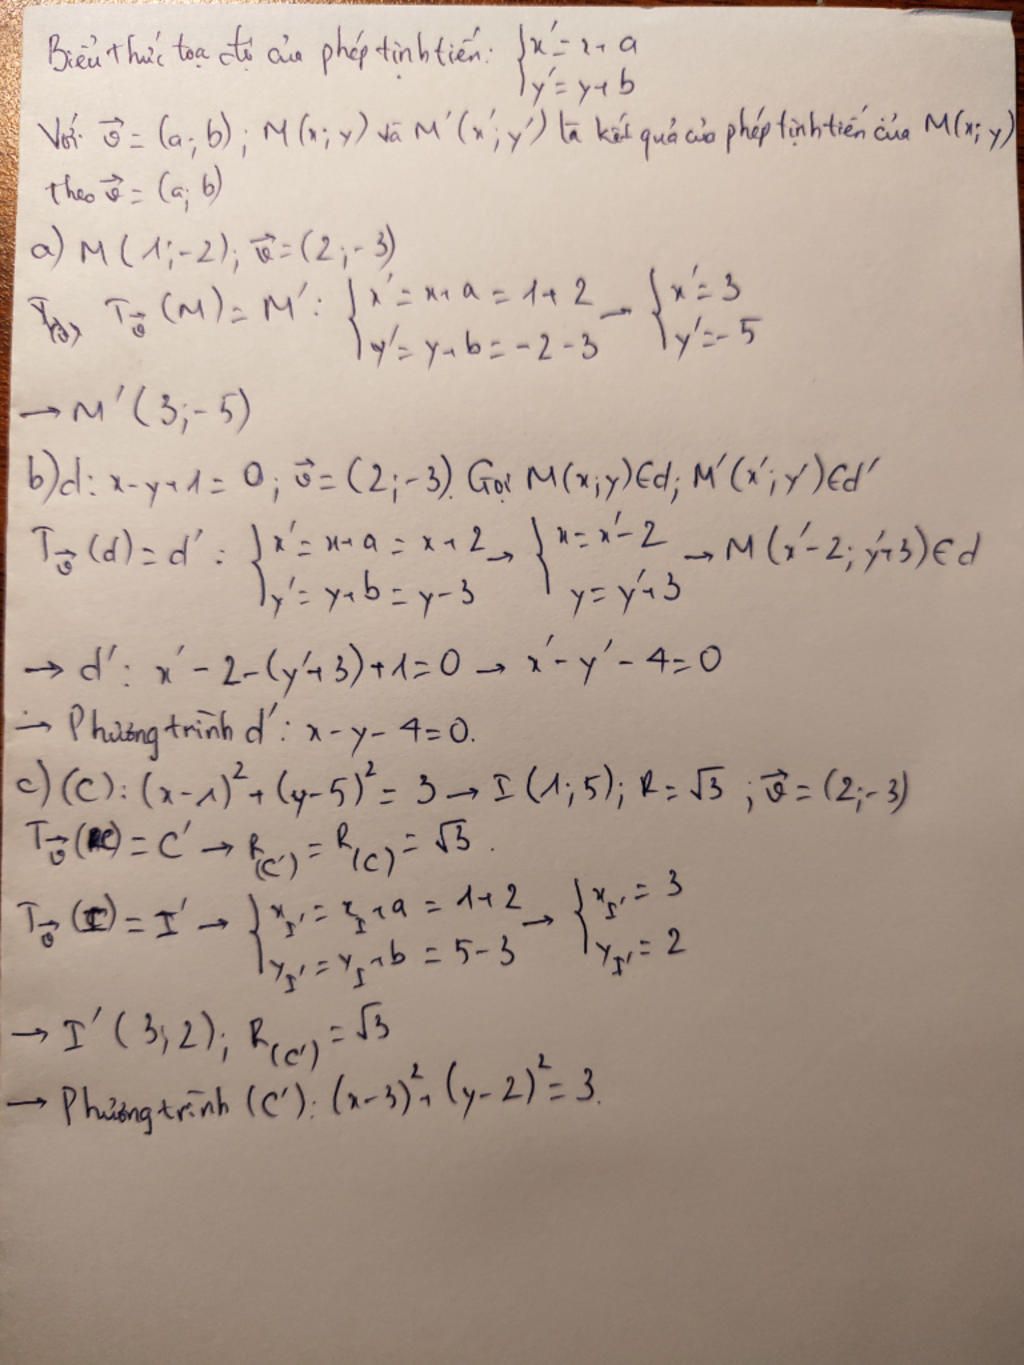 Biểu thức tọa độ của phép tịnh tiến: { x' = x + a
y' = y + b
Với v⃗ = (a; b); M(x; y) và M'(x'; y') là kết quả của phép tịnh tiến của M(x; y)
theo v⃗ = (a; b)
a) M(1; -2); v⃗ = (2; -3)
T_v⃗ (M) = M': { x' = x + a = 1 + 2 → { x' = 3
y' = y + b = -2 - 3 y' = -5
→ M'(3; -5)
b) d: x - y + 1 = 0; v⃗ = (2; -3). Gọi M(x; y) ∈ d; M'(x'; y') ∈ d'
T_v⃗ (d) = d': { x' = x + a = x + 2 → { x = x' - 2 → M(x' - 2; y' + 3) ∈ d
y' = y + b = y - 3 y = y' + 3
→ d': x' - 2 - (y' + 3) + 1 = 0 → x' - y' - 4 = 0
→ Phương trình d': x - y - 4 = 0.
c) (C): (x - 1)² + (y - 5)² = 3 → I(1; 5); R = √3; v⃗ = (2; -3)
T_v⃗ (C) = C' → R_(C') = R_(C) = √3.
T_v⃗ (I) = I' → { x_I' = x_I + a = 1 + 2 → { x_I' = 3
y_I' = y_I + b = 5 - 3 y_I' = 2
→ I'(3; 2); R_(C') = √3
→ Phương trình (C'): (x - 3)² + (y - 2)² = 3.